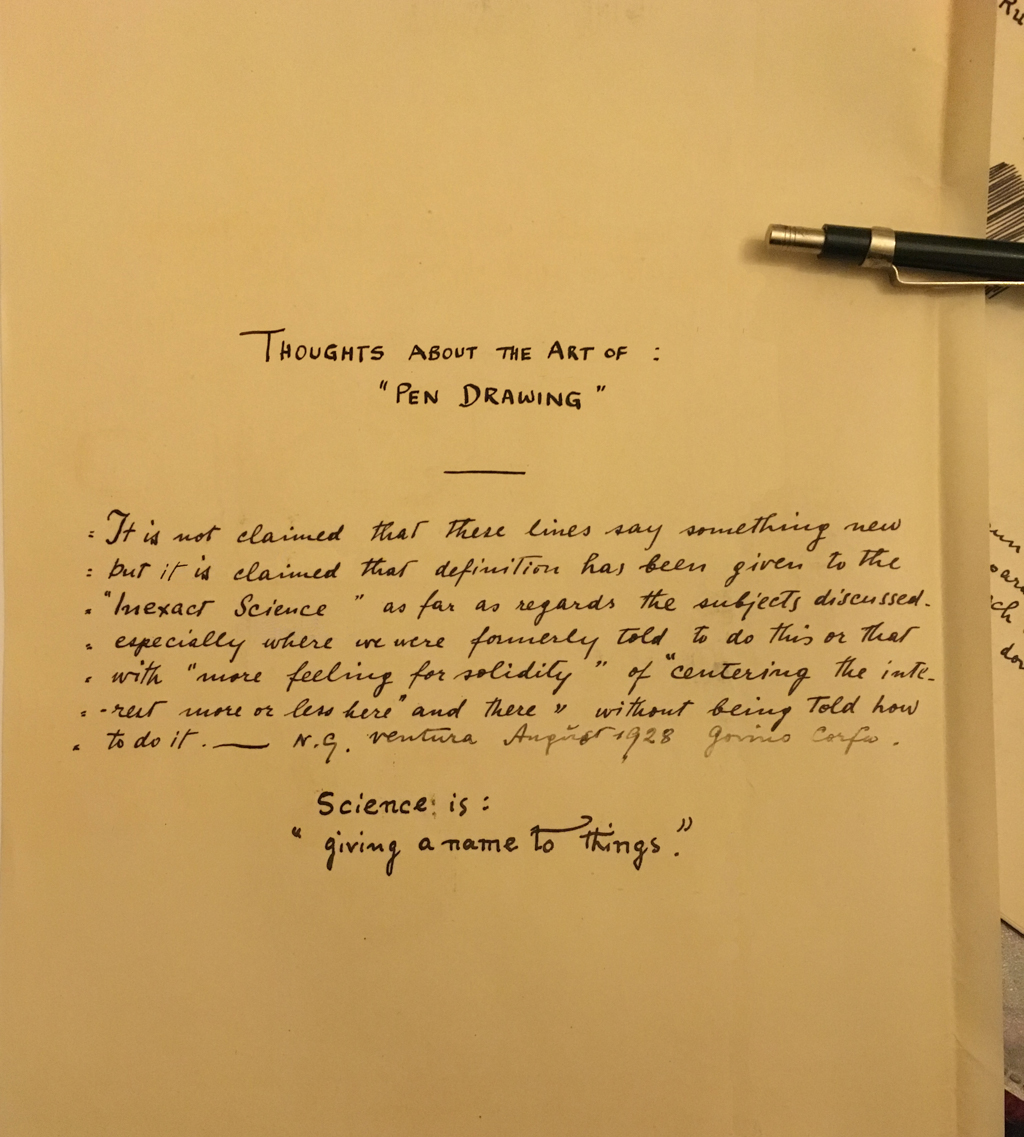 THOUGHTS ABOUT THE ART OF :
"PEN DRAWING"
: It is not claimed that these lines say something new
: but it is claimed that definition has been given to the
. "Inexact Science" as far as regards the subjects discussed.
. especially where we were formerly told to do this or that
. with "more feeling for solidity" of "centering the inte-
: -rest more or less here" and there " without being told how
. to do it. — N.G. Ventura August 1928
Science is :
" giving a name to things."